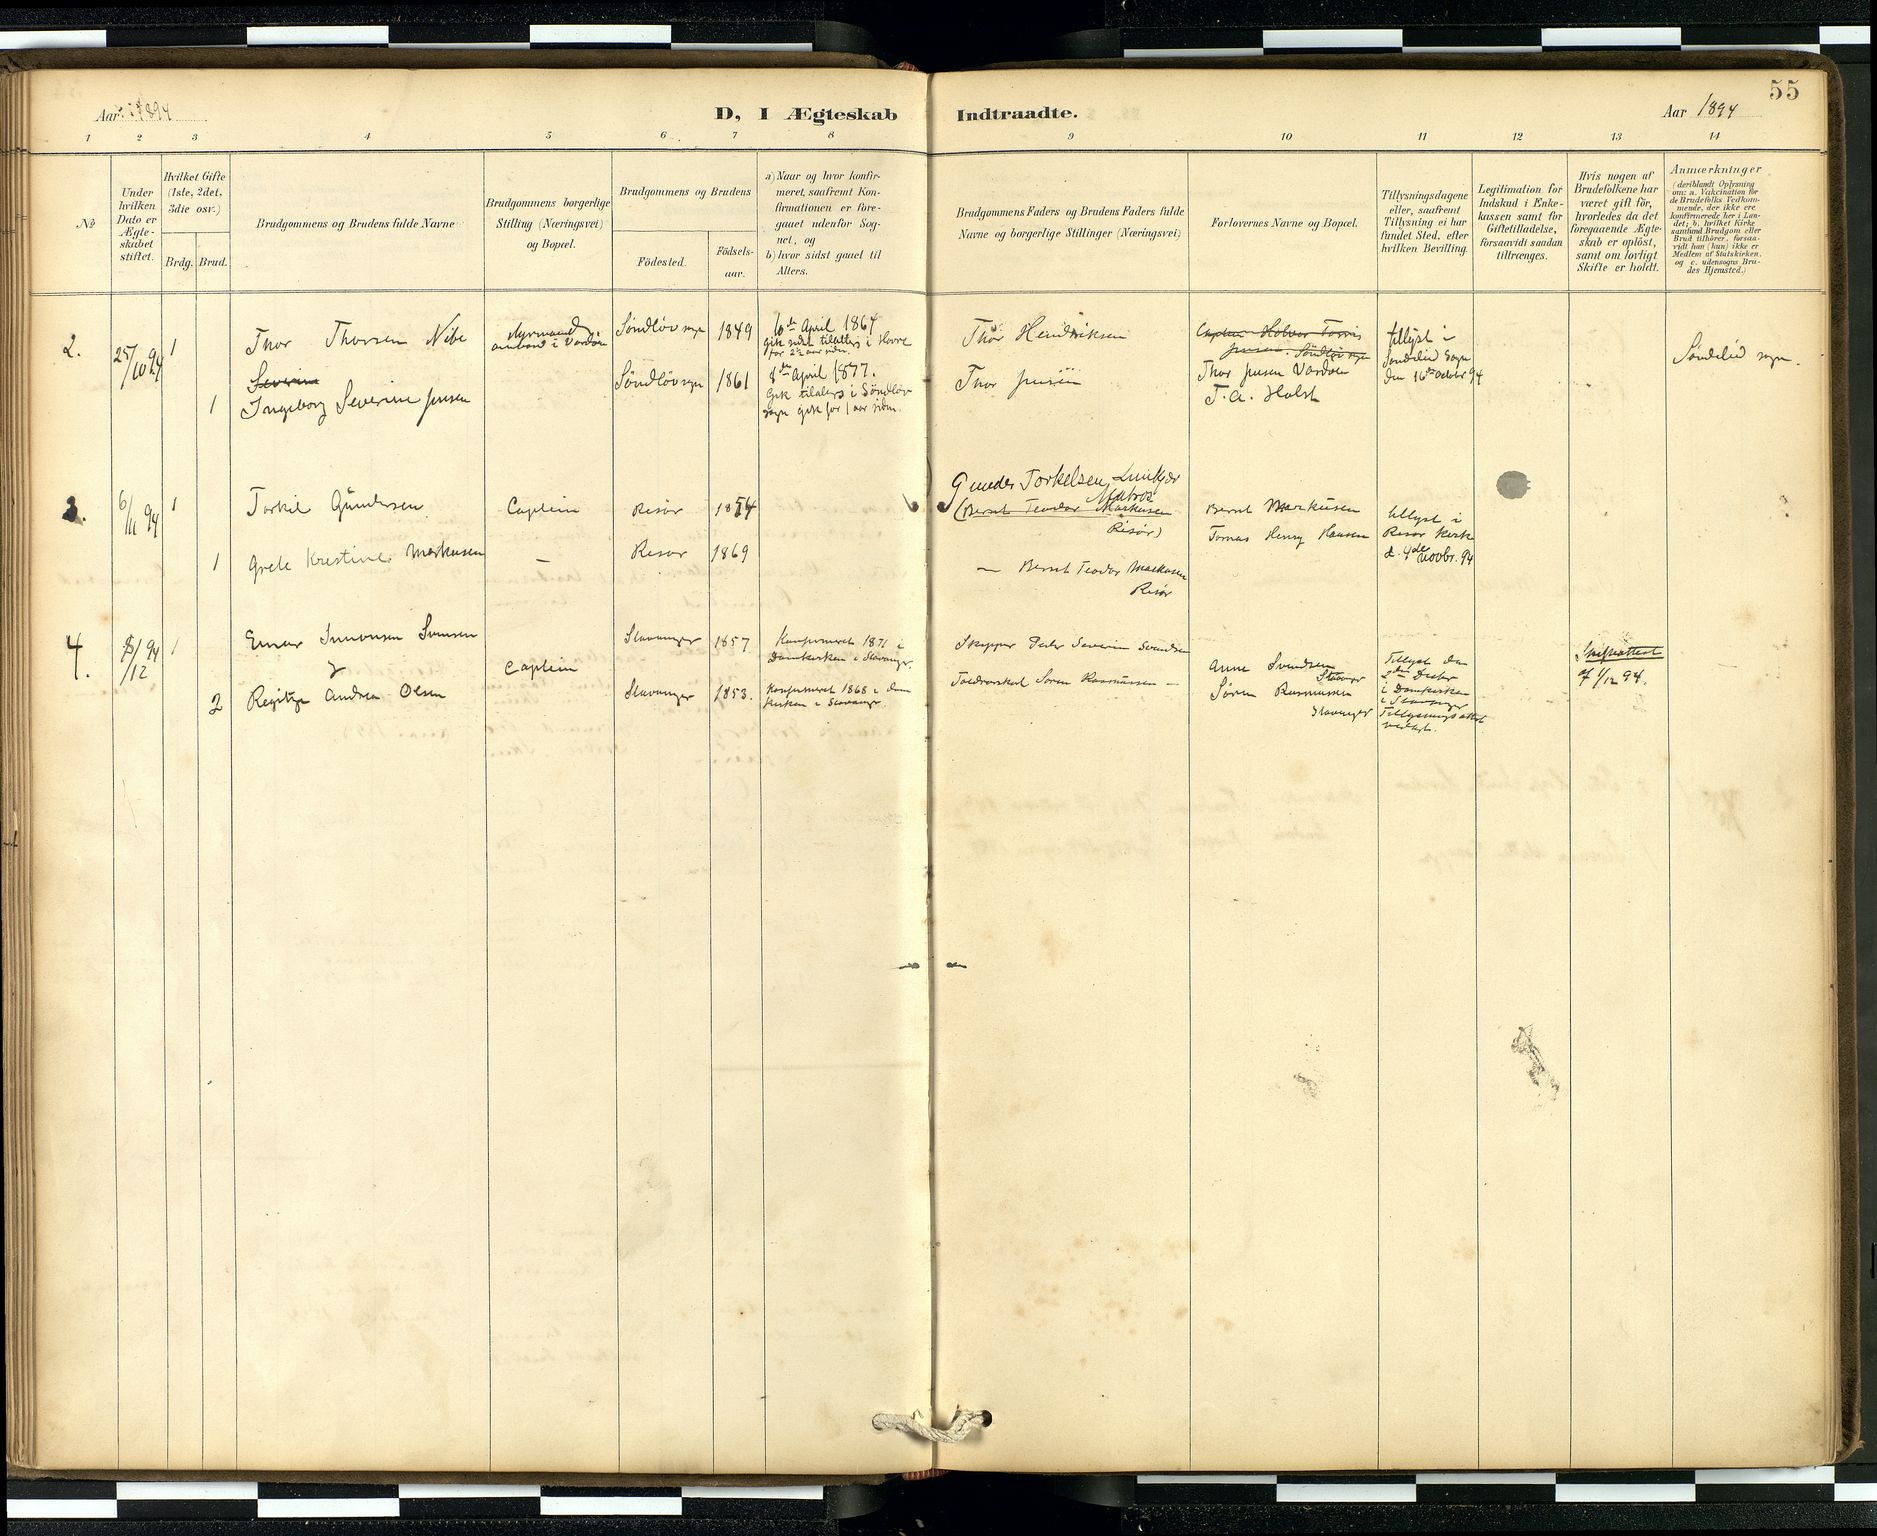 55
Aar 1894
D, I Ægteskab
Indtraadte.
Aar 1894
1 2 3 4 5 6 7 8 9 10 11 12 13 14
№
Under
hvilken
Dato er
Ægte-
skabet
stiftet.
Hvilket Gifte
(1ste, 2det,
3die osv.)
Brdg.
Brud.
Brudgommens og Brudens fulde Navne
Brudgommens borgerlige
Stilling (Næringsvei)
og Bopæl.
Brudgommens og Brudens
Födested.
Födsels-
aar.
a) Naar og hvor konfir-
meret, saafremt Kon-
firmationen er fore-
gaaet udenfor Sog-
net, og
b) hvor sidst gaaet til
Alters.
Brudgommens Faders og Brudens Faders fulde
Navne og borgerlige Stillinger (Næringsvei)
Forlovernes Navne og Bopæl.
Tillysningsdagene
eller, saafremt
Tillysning ei har
fundet Sted, efter
hvilken Bevilling.
Legitimation for
Indskud i Enke-
kassen samt for
Giftetilladelse,
forsaavidt saadan
tiltrænges.
Hvis nogen af
Brudefolkene har
været gift för,
hvorledes da det
foregaaende Ægte-
skab er oplöst,
samt om lovligt
Skifte er holdt.
Anmærkninger
(deriblandt Oplysning
om: a. Vakcination for
de Brudefolks Vedkom-
mende, der ikke ere
konfirmerede her i Lan-
det; b. hvilket Kirke-
samfund Brudgom eller
Brud tilhörer, forsaa-
vidt han (hun) ikke er
Medlem af Statskirken,
og c. udensogns Bru-
des Hjemsted.)
2.
25/10 94
1
Thor Thorsen Nibe
Styrmand
ombord i Vardøe
Søndløv sogn
1849
10de April 1864
gik sidst tilalters i Havre
for 2½ aar siden.
Thor Hendriksen
Captein Halvor Torris
Jensen. Søndløv sogn
Thor Jensen Vardøe
T. A. Holst
tillyst i
Søndeled Sogn
den 16de October 94
Søndeled sogn.
Severine
1
Ingeborg Severine Jensen
Søndløv sogn
1861
8de April 1877.
Gik tilalters i Søndløv
sogn gik for 1 aar siden.
Thor Jensen
3.
6/11 94
1
Torkil Gundersen
Captein
Risør
1854
Gunder Torkelsen
Matros
(Bernt Teodor Markusen
Risør)
Bernt Markusen
Tomas Henry Hansen
tillyst i
Risør Kirke
d. 4de novbr. 94
1
Grete Kristine Markusen
—
Risør
1869
— Bernt Teodor Markusen
Risør
4.
/12 94
1
Einar Simonsen Svensen
Captein
Stavanger
1857
Konfirmeret 1871 i
Domkirken i Stavanger.
Skipper Peder Severin Svendsen
Anne Svendsen
Stavanger
Sören Rasmussen
Stavanger
Tillyst den
2den Decbr
i Domkirken
i Stavanger
Tillysningsattest
vedlagt.
Skifteattest
af 1/12 94.
2
Regitze Andrea Olsen
Stavanger
1853.
Konfirmeret 1868 i Dom
kirken i Stavanger.
Toldrorskal Sören Rasmussen —